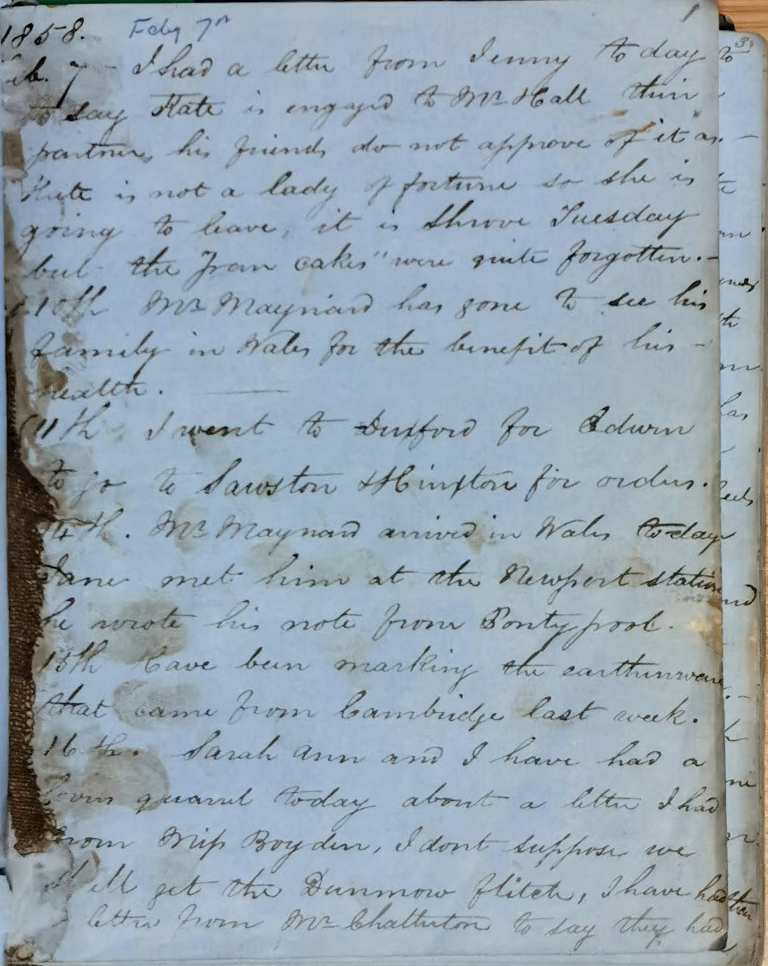 1858. Feby 7th 1
Feb. 7 - I had a letter from Jenny to day
to say Kate is engaged to Mr Hall their
partner, his friends do not approve of it as -
Kate is not a lady of fortune so she is
going to leave, it is Shrove Tuesday
but the "pan cakes" were quite forgotten. -
10th Mr Maynard has gone to see his
family in Wales for the benefit of his -
health.
11th I went to Duxford for Edwin
to go to Sawston & Hinxton for orders.
14th. Mr Maynard arrived in Wales to-day
Jane met him at the Newport station
he wrote his note from Pontypool.
15th Have been marking the earthenware
that came from Cambridge last week.
16th. Sarah Ann and I have had a
lovers quarrel today about a letter I had
from Miss Boyden, I dont suppose we
shall get the Dunmow flitch, I have had
letter from Mr Chatterton to say they had